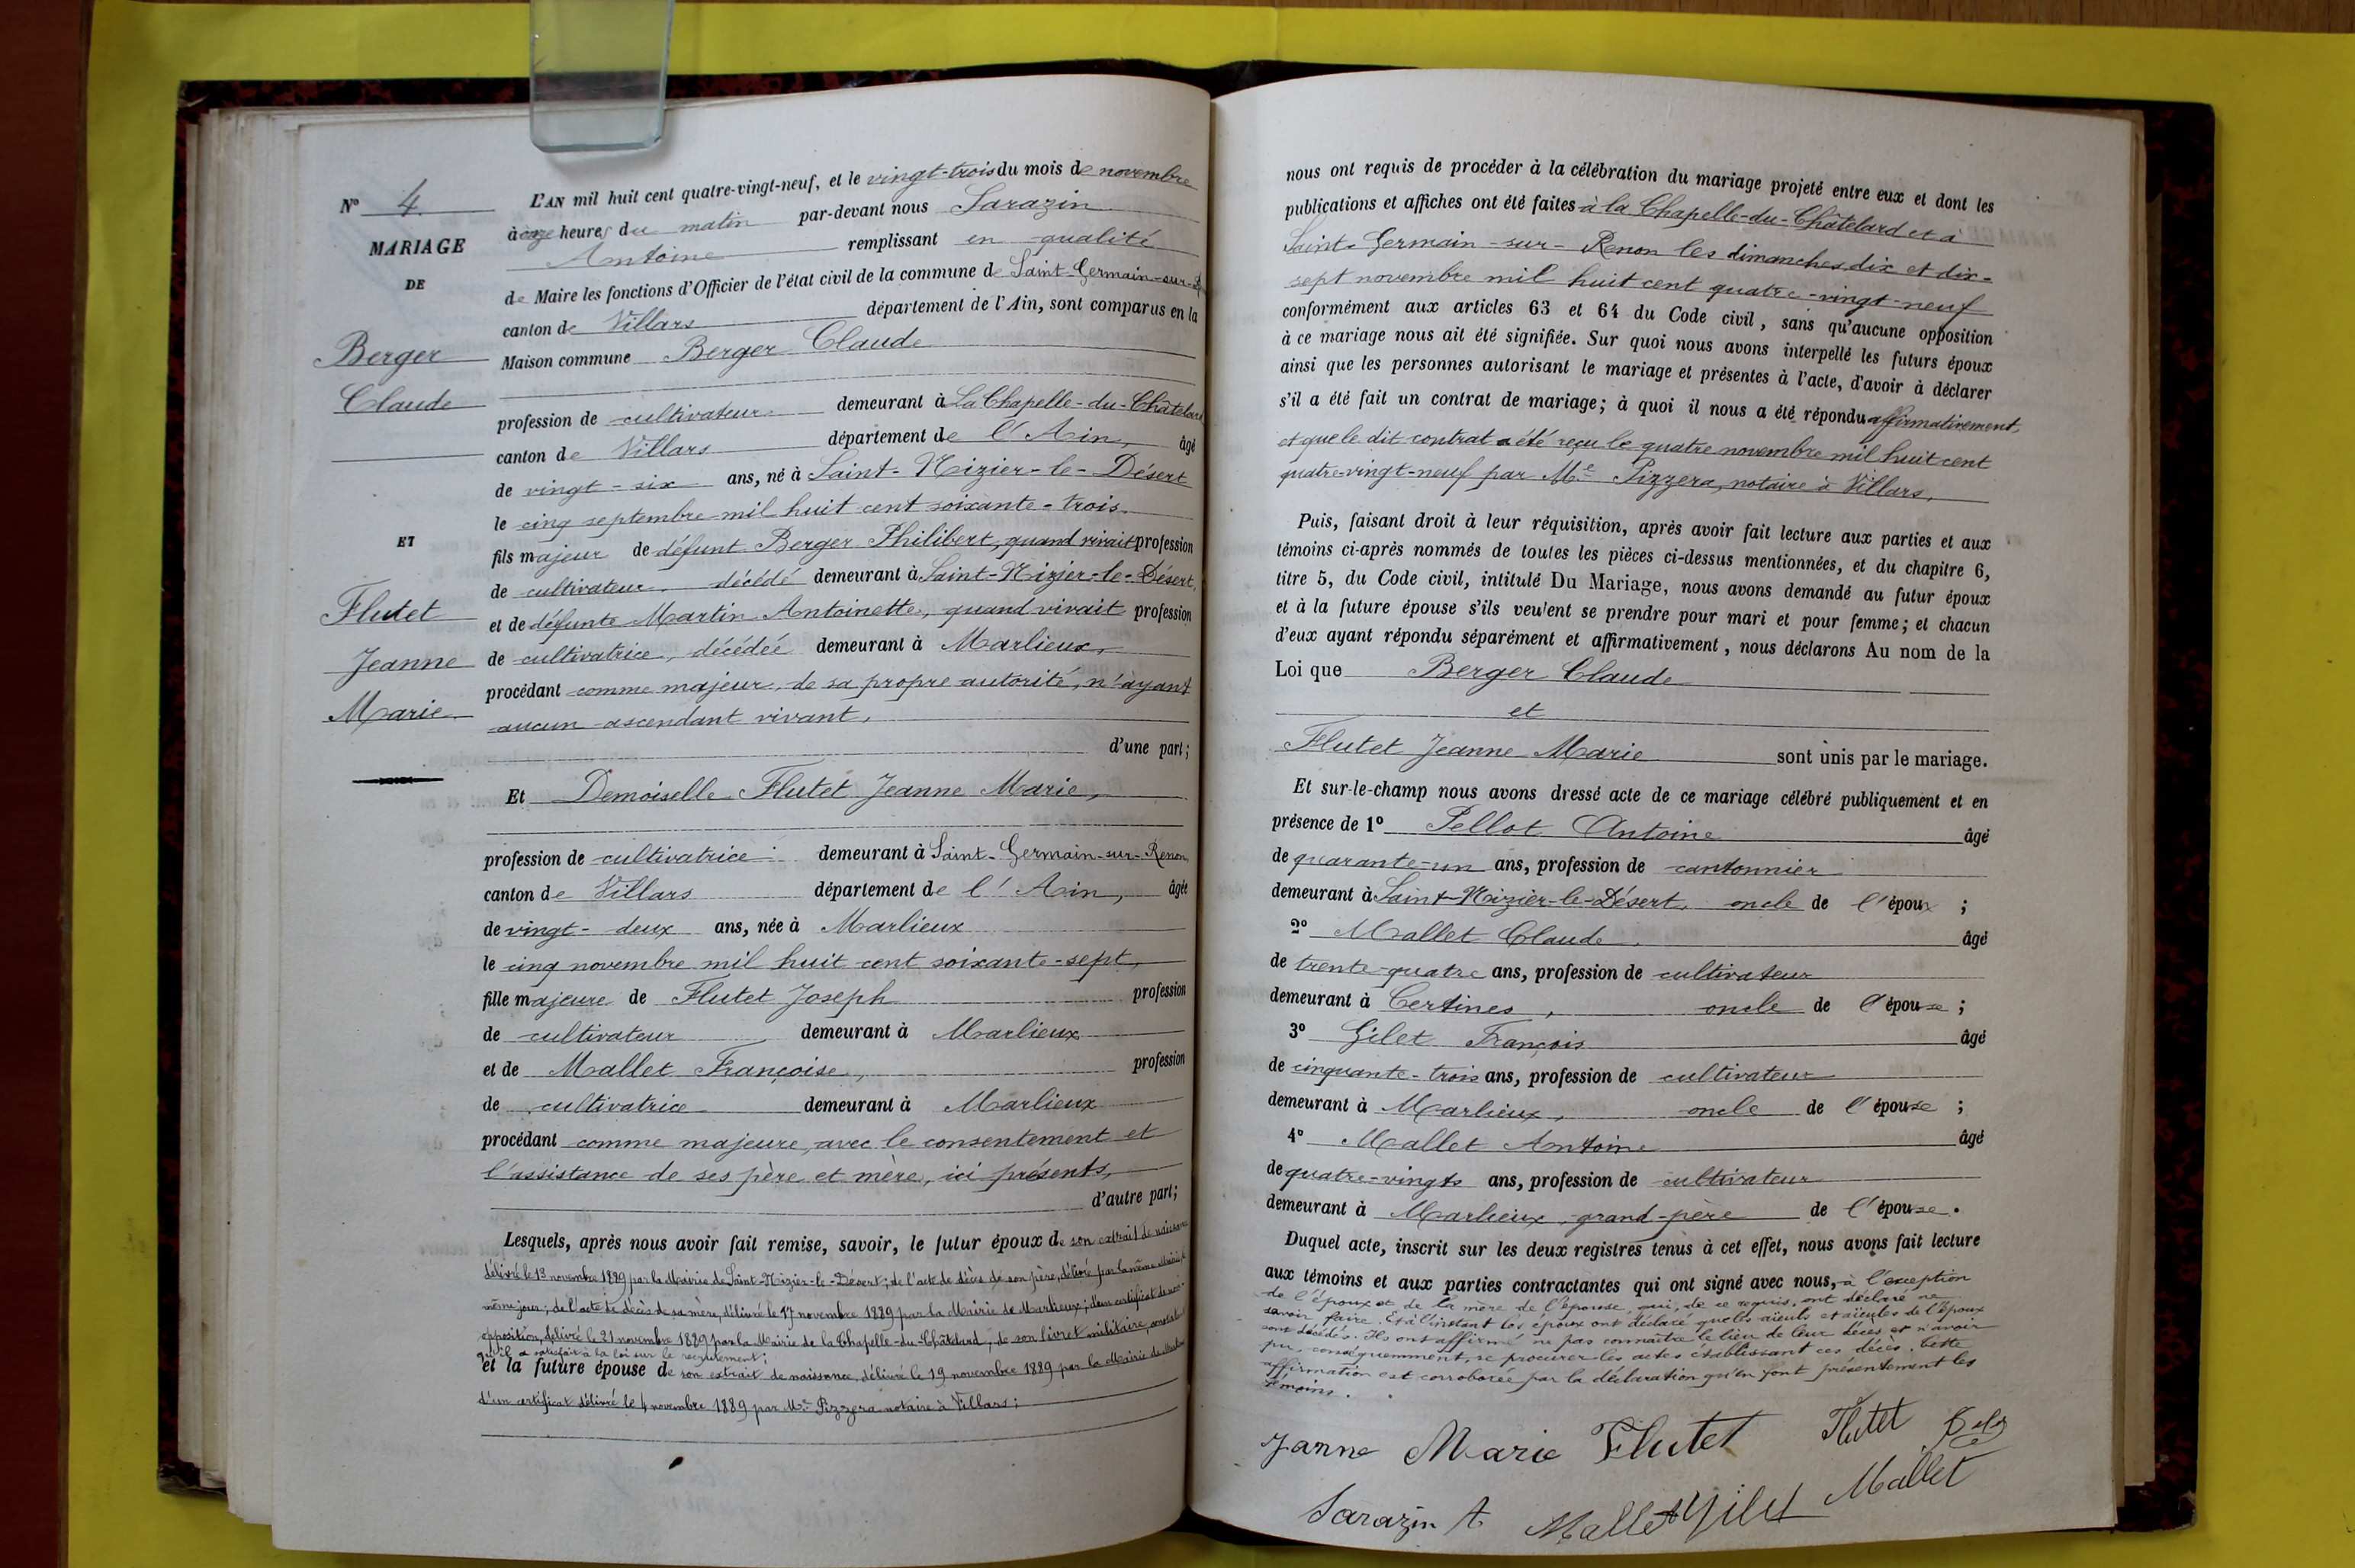 N° 4
MARIAGE
DE
Berger
Claude
ET
Flutet
Jeanne
Marie
L'AN mil huit cent quatre-vingt-neuf, et le vingt-trois du mois de novembre
à onze heures du matin par-devant nous Sarazin
Antoine remplissant en qualité
de Maire les fonctions d'Officier de l'état civil de la commune de Saint-Germain-sur-R
canton de Villars département de l'Ain, sont comparus en la
Maison commune Berger Claude
profession de cultivateur demeurant à La Chapelle-du-Châtelard
canton de Villars département de l'Ain, âgé
de vingt-six ans, né à Saint-Nizier-le-Désert
le cinq septembre mil huit cent soixante-trois.
fils majeur de défunt Berger Philibert, quand vivait profession
de cultivateur, décédé demeurant à Saint-Nizier-le-Désert,
et de défunte Martin Antoinette, quand vivait profession
de cultivatrice, décédée demeurant à Marlieux,
procédant comme majeur, de sa propre autorité, n'ayant
aucun ascendant vivant,
d'une part;
Et Demoiselle Flutet Jeanne Marie,
profession de cultivatrice demeurant à Saint-Germain-sur-Renon
canton de Villars département de l'Ain, âgée
de vingt-deux ans, née à Marlieux
le cinq novembre mil huit cent soixante-sept,
fille majeure de Flutet Joseph profession
de cultivateur demeurant à Marlieux
et de Mallet Françoise, profession
de cultivatrice demeurant à Marlieux
procédant comme majeure, avec le consentement et
l'assistance de ses père et mère, ici présents,
d'autre part;
Lesquels, après nous avoir fait remise, savoir, le futur époux de son extrait de naissance
délivré le 13 novembre 1889 par la Mairie de Saint-Nizier-le-Désert; de l'acte de décès de son père, délivré par la même Mairie le
même jour; de l'acte de décès de sa mère, délivré le 17 novembre 1889 par la Mairie de Marlieux; d'un certificat de non-
opposition, délivré le 21 novembre 1889 par la Mairie de la Chapelle-du-Châtelard; de son livret militaire, constatant
qu'il a satisfait à la loi sur le recrutement;
et la future épouse de son extrait de naissance, délivré le 19 novembre 1889 par la Mairie de Marlieux
d'un certificat délivré le 4 novembre 1889 par Me Pizzera notaire à Villars;
nous ont requis de procéder à la célébration du mariage projeté entre eux et dont les
publications et affiches ont été faites à la Chapelle-du-Châtelard et à
Saint-Germain-sur-Renon les dimanches dix et dix-
sept novembre mil huit cent quatre-vingt-neuf
conformément aux articles 63 et 64 du Code civil, sans qu'aucune opposition
à ce mariage nous ait été signifiée. Sur quoi nous avons interpellé les futurs époux
ainsi que les personnes autorisant le mariage et présentes à l'acte, d'avoir à déclarer
s'il a été fait un contrat de mariage; à quoi il nous a été répondu affirmativement,
et que le dit contrat a été reçu le quatre novembre mil huit cent
quatre-vingt-neuf par Me Pizzera, notaire à Villars.
Puis, faisant droit à leur réquisition, après avoir fait lecture aux parties et aux
témoins ci-après nommés de toutes les pièces ci-dessus mentionnées, et du chapitre 6,
titre 5, du Code civil, intitulé Du Mariage, nous avons demandé au futur époux
et à la future épouse s'ils veulent se prendre pour mari et pour femme; et chacun
d'eux ayant répondu séparément et affirmativement, nous déclarons Au nom de la
Loi que Berger Claude
et
Flutet Jeanne Marie sont unis par le mariage.
Et sur-le-champ nous avons dressé acte de ce mariage célébré publiquement et en
présence de 1° Pellot Antoine âgé
de quarante-un ans, profession de cantonnier
demeurant à Saint-Nizier-le-Désert, oncle de l'époux ;
2° Mallet Claude, âgé
de trente-quatre ans, profession de cultivateur
demeurant à Certines, oncle de l'épouse ;
3° Gilet François âgé
de cinquante-trois ans, profession de cultivateur
demeurant à Marlieux, oncle de l'épouse ;
4° Mallet Antoine âgé
de quatre-vingts ans, profession de cultivateur
demeurant à Marlieux, grand-père de l'épouse.
Duquel acte, inscrit sur les deux registres tenus à cet effet, nous avons fait lecture
aux témoins et aux parties contractantes qui ont signé avec nous, à l'exception
de l'époux et de la mère de l'épouse, qui, de ce requis, ont déclaré ne
savoir faire. Et à l'instant les époux ont déclaré que les aïeuls et aïeules de l'époux
sont décédés. Ils ont affirmé ne pas connaître le lieu de leur décès et n'avoir
pu, conséquemment, se procurer les actes établissant ces décès. Cette
affirmation est corroborée par la déclaration qu'en font présentement les
témoins.
Janne Marie Flutet Flutet
Sarazin A Mallet Gilet Mallet